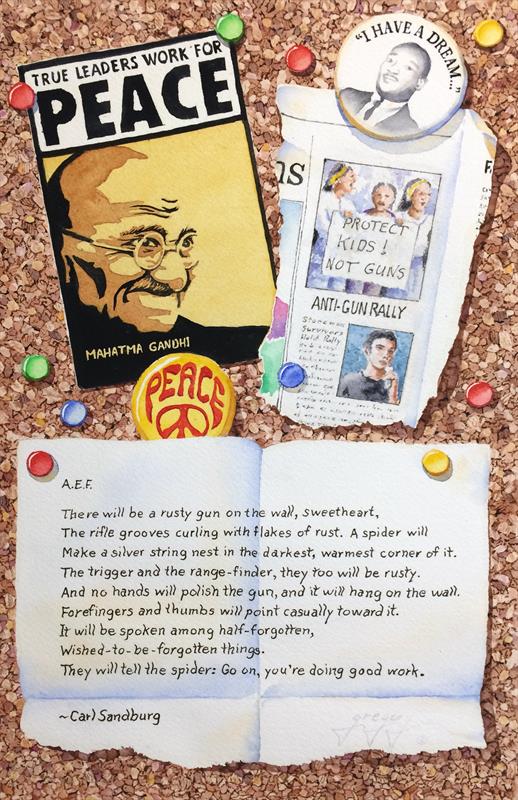 TRUE LEADERS WORK FOR
PEACE
MAHATMA GANDHI
"I HAVE A DREAM..."
ns
PROTECT
KIDS!
NOT GUNS
ANTI-GUN RALLY
Stoneman
Survivors
Hold Rally
PEACE
A.E.F.
There will be a rusty gun on the wall, sweetheart,
The rifle grooves curling with flakes of rust. A spider will
Make a silver string nest in the darkest, warmest corner of it.
The trigger and the range-finder, they too will be rusty.
And no hands will polish the gun, and it will hang on the wall.
Forefingers and thumbs will point casually toward it.
It will be spoken among half-forgotten,
Wished-to-be-forgotten things.
They will tell the spider: Go on, you're doing good work.
~Carl Sandburg